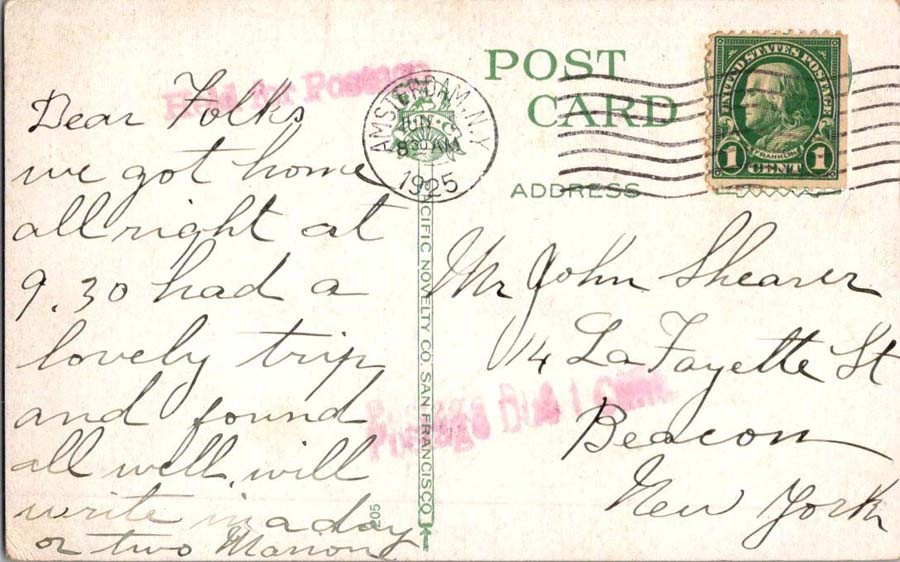 POST CARD
ADDRESS
UNITED STATES POSTAGE
FRANKLIN
1 CENT 1
AMSTERDAM, N.Y.
JUN
8 30 AM
1925
Held for Postage
Dear Folks
we got home
all right at
9.30 had a
lovely trip
and found
all well, will
write in a day
or two Marion
Mr John Shearer
14 La Fayette St
Beacon
New York
Postage Due 1 Cent.
PACIFIC NOVELTY CO. SAN FRANCISCO